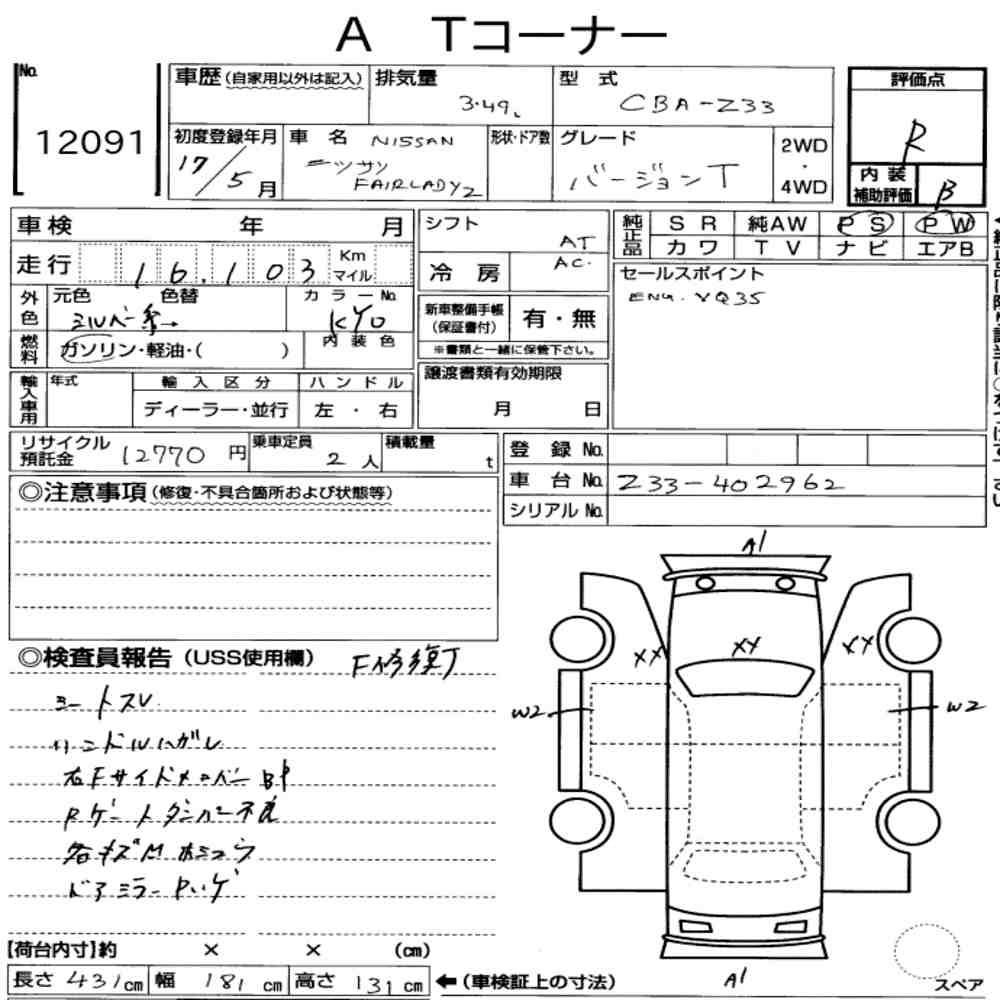 A Tコーナー
No. 12091
車歴(自家用以外は記入)
排気量 3.49L
型式 CBA-Z33
評価点 R
内装補助評価 B
初度登録年月 17/5月
車名 NISSAN ニッサン FAIRLADYZ
形状・ドア数
グレード バージョンT
2WD・4WD
車検 年 月
走行 16.103 Km マイル
シフト AT
冷房 AC.
純正品 SR 純AW PS PW
カワ TV ナビ エアB
セールスポイント
ENG. VQ35
外色 元色 シルバー系 色替
カラーNo. KY0
燃料 ガソリン・軽油・( )
内装色
新車整備手帳(保証書付) 有・無
※書類と一緒に保管下さい。
輸入車用 年式 輸入区分 ハンドル
ディーラー・並行 左・右
譲渡書類有効期限
月 日
リサイクル預託金 12770円
乗車定員 2人
積載量 t
登録No.
車台No. Z33-402962
シリアルNo.
◎注意事項(修復・不具合箇所および状態等)
◎検査員報告(USS使用欄) F修復了
シートスレ
ハンドルハガレ
右FサイドメンバーBP
Rゲートダンパー不良
各キズM
ドアミラーPハゲ
A1
XX XX XX
W2 W2
A1
【荷台内寸】約 × × (cm)
長さ 431cm 幅 181cm 高さ 131cm ←(車検証上の寸法)
スペア